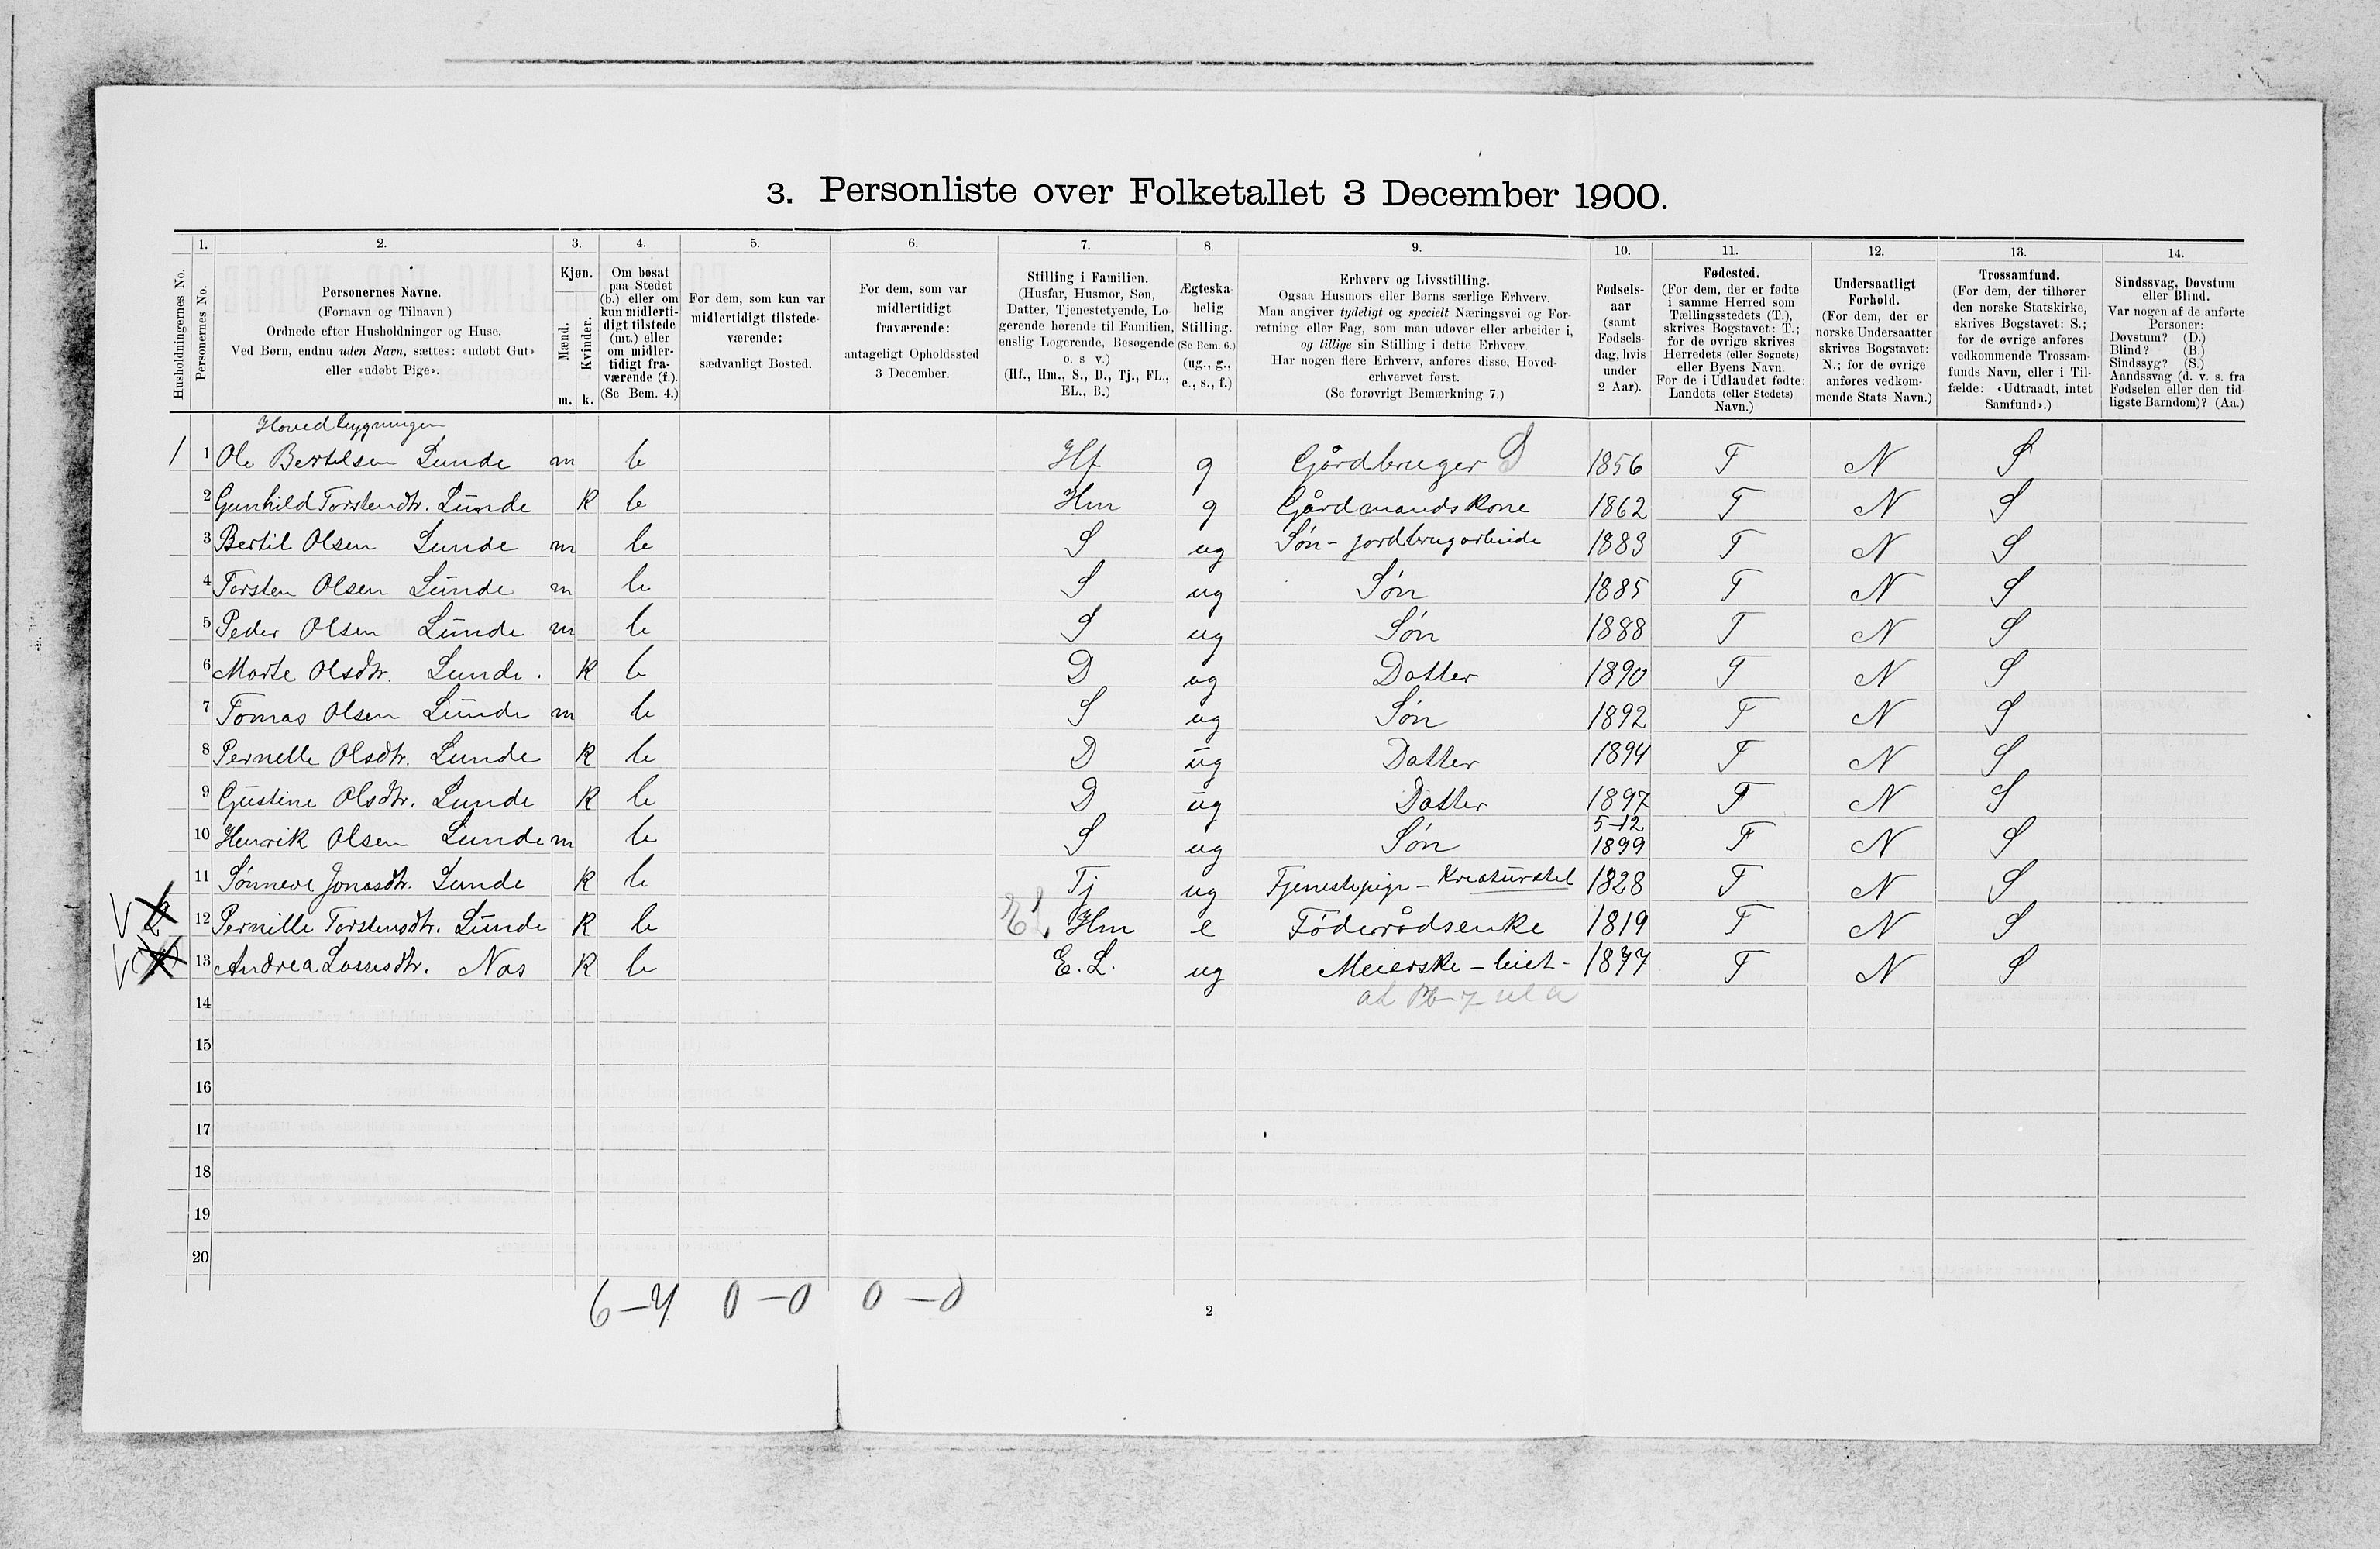 3. Personliste over Folketallet 3 December 1900.
1. 2. 3. 4. 5. 6. 7. 8. 9. 10. 11. 12. 13. 14.
Husholdningernes No.
Personernes No.
Personernes Navne.
(Fornavn og Tilnavn )
Ordnede efter Husholdninger og Huse.
Ved Børn, endnu uden Navn, sættes: «udøbt Gut»
eller «udøbt Pige».
Kjøn.
Mænd.
Kvinder.
m. k.
Om bosat
paa Stedet
(b.) eller om
kun midlerti-
digt tilstede
(mt.) eller
om midler-
tidigt fra-
værende (f.).
(Se Bem. 4.)
For dem, som kun var
midlertidigt tilstede-
værende:
sædvanligt Bosted.
For dem, som var
midlertidigt
fraværende:
antageligt Opholdssted
3 December.
Stilling i Familien.
(Husfar, Husmor, Søn,
Datter, Tjenestetyende, Lo-
gerende hørende til Familien,
enslig Logerende, Besøgende
o. s v.)
(Hf., Hm., S., D., Tj., FL.,
EL., B.)
Ægteska-
belig
Stilling.
(Se Bem. 6.)
(ug., g.,
e., s., f.)
Erhverv og Livsstilling.
Ogsaa Husmors eller Børns særlige Erhverv.
Man angiver tydeligt og specielt Næringsvei og For-
retning eller Fag, som man udøver eller arbeider i,
og tillige sin Stilling i dette Erhverv.
Har nogen flere Erhverv, anføres disse, Hoved-
erhvervet først.
(Se forøvrigt Bemærkning 7.)
Fødsels-
aar
(samt
Fødsels-
dag, hvis
under
2 Aar).
Fødested.
(For dem, der er fødte
i samme Herred som
Tællingsstedets (T.),
skrives Bogstavet: T.;
for de øvrige skrives
Herredets (eller Sognets)
eller Byens Navn.
For de i Udlandet fødte:
Landets (eller Stedets)
Navn.)
Undersaatligt
Forhold.
(For dem, der er
norske Undersaatter
skrives Bogstavet:
N.; for de øvrige
anføres vedkom-
mende Stats Navn.)
Trossamfund.
(For dem, der tilhører
den norske Statskirke,
skrives Bogstavet: S.;
for de øvrige anføres
vedkommende Trossam-
funds Navn, eller i Til-
fælde: «Udtraadt, intet
Samfund».)
Sindssvag, Døvstum
eller Blind.
Var nogen af de anførte
Personer:
Døvstum? (D.)
Blind? (B.)
Sindssyg? (S.)
Aandssvag (d. v. s. fra
Fødselen eller den tid-
ligste Barndom)? (Aa.)
Hovedbygningen
1 1 Ole Bertelsen Lunde m b Hf g Gårdbruger S 1856 T N S
2 Gunhild Torstendtr. Lunde K b Hm g Gårdmandskone 1862 T N S
3 Bertil Olsen Lunde m b S ug Søn - jordbrugarbeide 1883 T N S
4 Torsten Olsen Lunde m b S ug Søn 1885 T N S
5 Peder Olsen Lunde m b S ug Søn 1888 T N S
6 Marte Olsdtr. Lunde. K b D ug Datter 1890 T N S
7 Tomas Olsen Lunde m b S ug Søn 1892 T N S
8 Pernelle Olsdtr. Lunde K b D ug Datter 1894 T N S
9 Gjustine Olsdtr. Lunde K b D ug Datter 1897 T N S
10 Henrik Olsen Lunde m b S ug Søn 5-12 1899 T N S
11 Sønneve Jonasdtr. Lunde K b Tj ug Tjenestepige - Kreaturstel 1828 T N S
12 Pernille Torstensdtr. Lunde K b EL Hm e Føderådsenke 1819 T N S
13 Andrea Lassesdtr. Nas K b E.L. ug Meierske - leiet - 1877 T N S
14
15
16
17
18
19
20
6-4 0-0 0-0
2